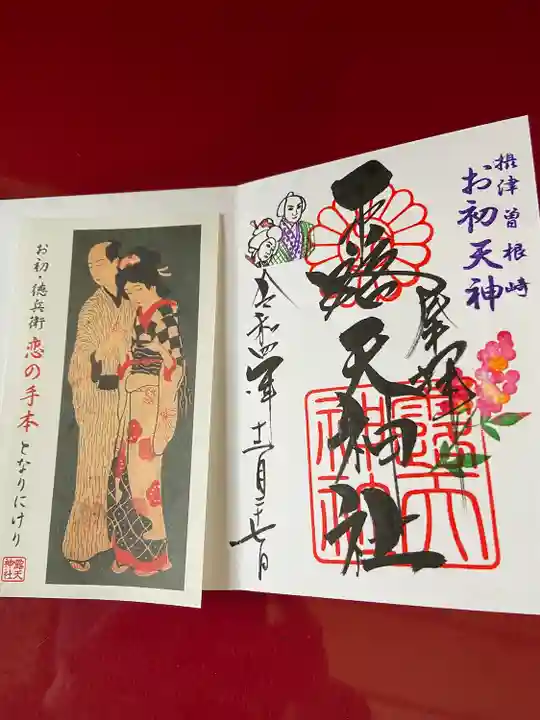 摂津曽根崎
お初天神
奉拝
露天神社
令和四年
十二月二十七日
露天
神社
お初・徳兵衛
恋の手本
となりにけり
露天
神社